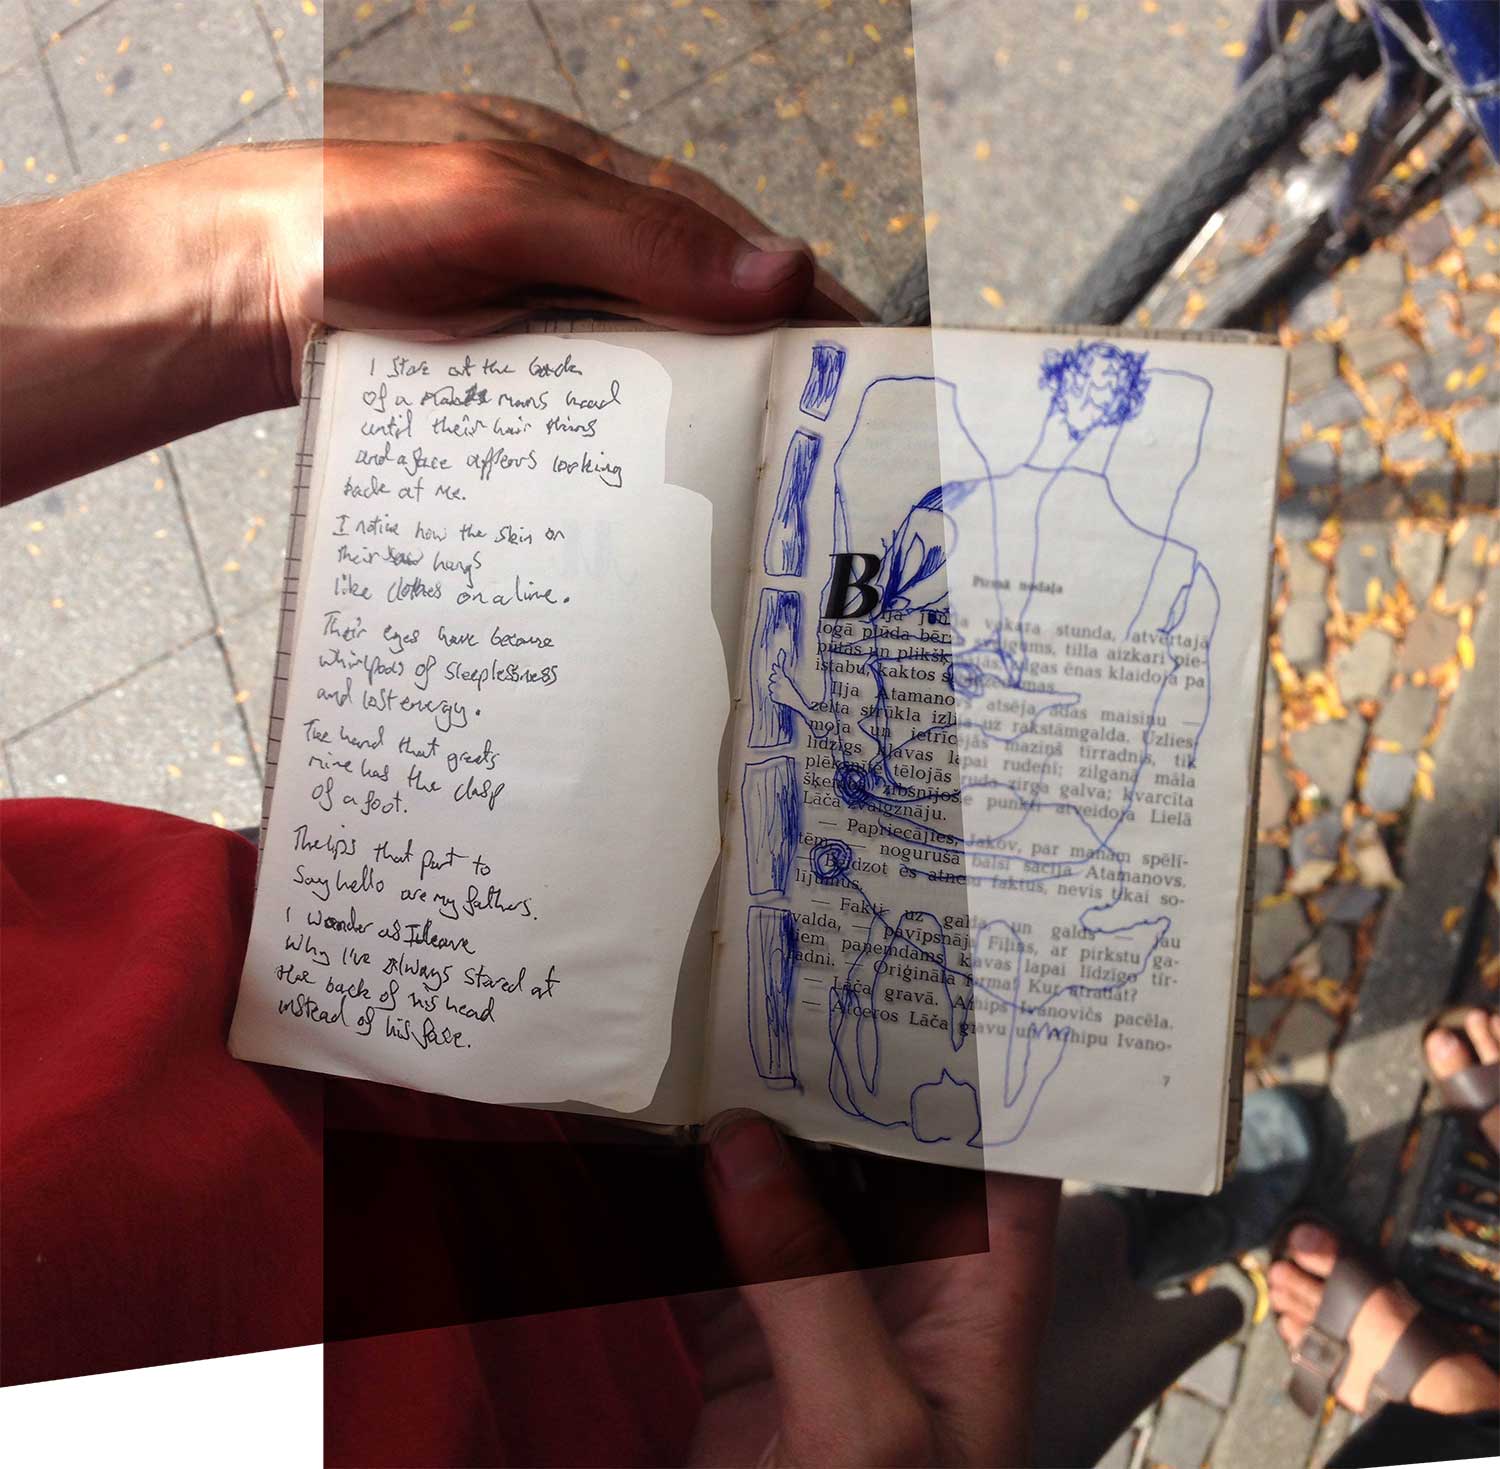 I stare at the back
of a mans head
until their hair thins
and a face appears looking
back at me.
I notice how the skin on
their hangs
like clothes on a line.
Their eyes have become
whirlpools of sleeplessness
and lost energy.
The hand that greets
mine has the clasp
of a foot.
The lips that part to
Say hello are my fathers.
I wonder as I leave
Why I've always stared at
the back of his head
instead of his face.
Pirmā nodaļa
B
ija jau vakara stunda, atvērtajā
logā plūda bērzu svaigums, tilla aizkari pie-
pūtās un plikšķ ilgas ēnas klaidoja pa
istabu, kaktos
Iļja Atamanovs atsēja ādas maisiņu —
zelta strūkla izlija uz rakstāmgalda. Uzlies-
moja un ietrīcējās maziņš tīrradnis, tik
līdzīgs kļavas lapai rudenī; zilganā māla
plēksnītē tēlojās ruda zirga galva; kvarcīta
šķembā zibsnījošie punkti atveidoja Lielā
Lāča zvaigznāju.
— Papriecājies, Jakov, par manām spēlī-
tēm, — nogurušā balsī sacīja Atamanovs.
— Beidzot es atnesu faktus, nevis tikai so-
lījumus.
— Fakti uz galda, un galds — jau
valda, — pavīpsnāja Fiļins, ar pirkstu ga-
liem paņemdams kļavas lapai līdzīgo tīr-
radni. — Oriģināla forma! Kur atradāt?
— Lāča gravā. Arhips Ivanovičs pacēla.
— Atceros Lāča gravu un Arhipu Ivano-
7